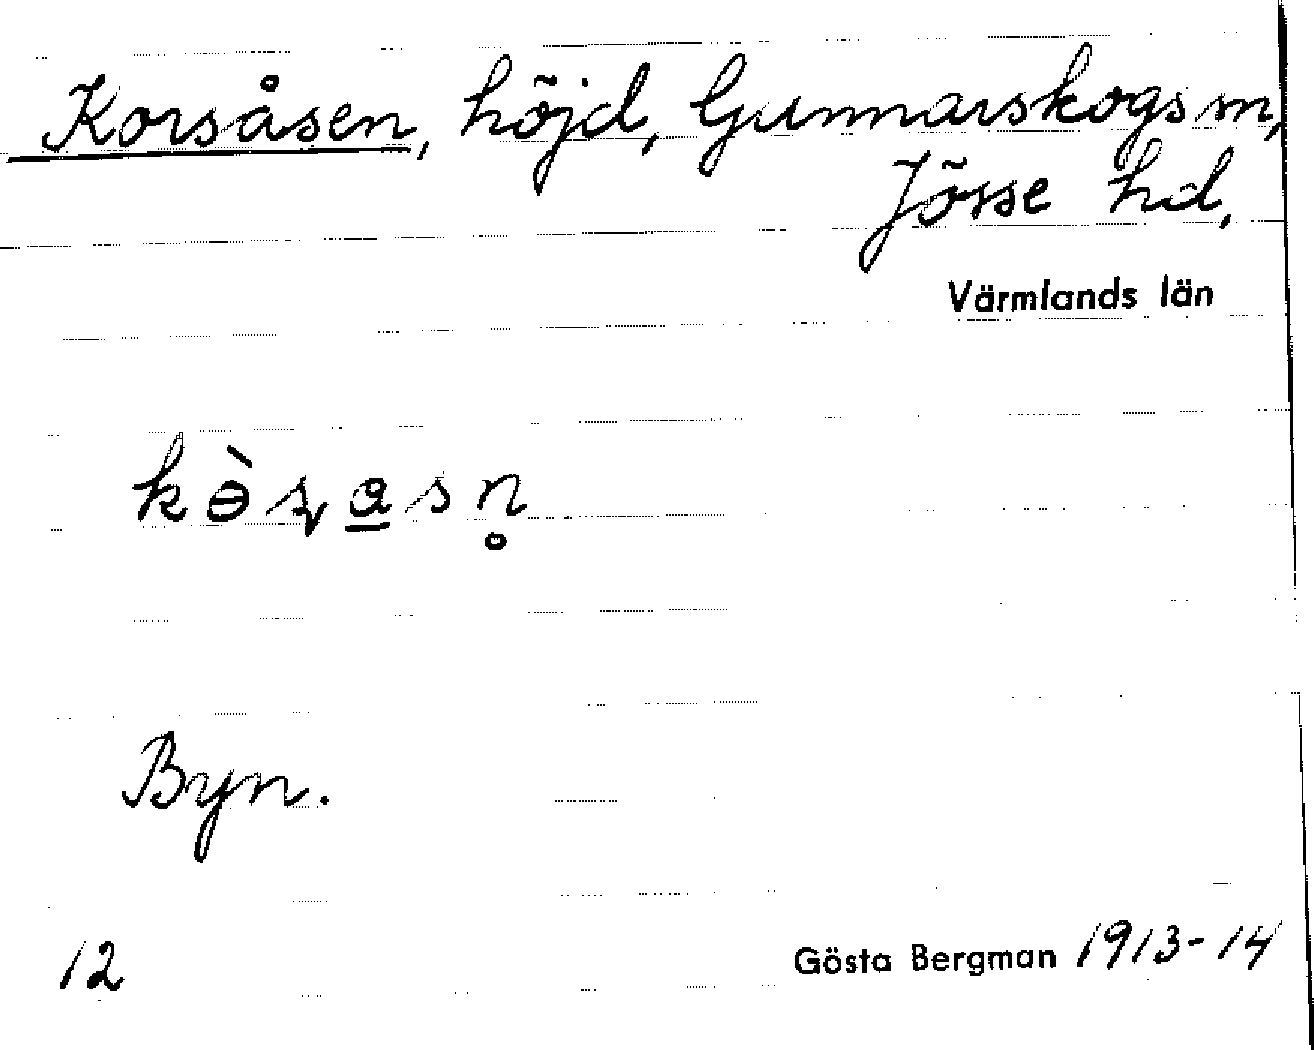 Korsåsen, höjd, Gunnarskogs sn,
Jösse hd,
Värmlands län
Byn.
12 Gösta Bergman 1913-14